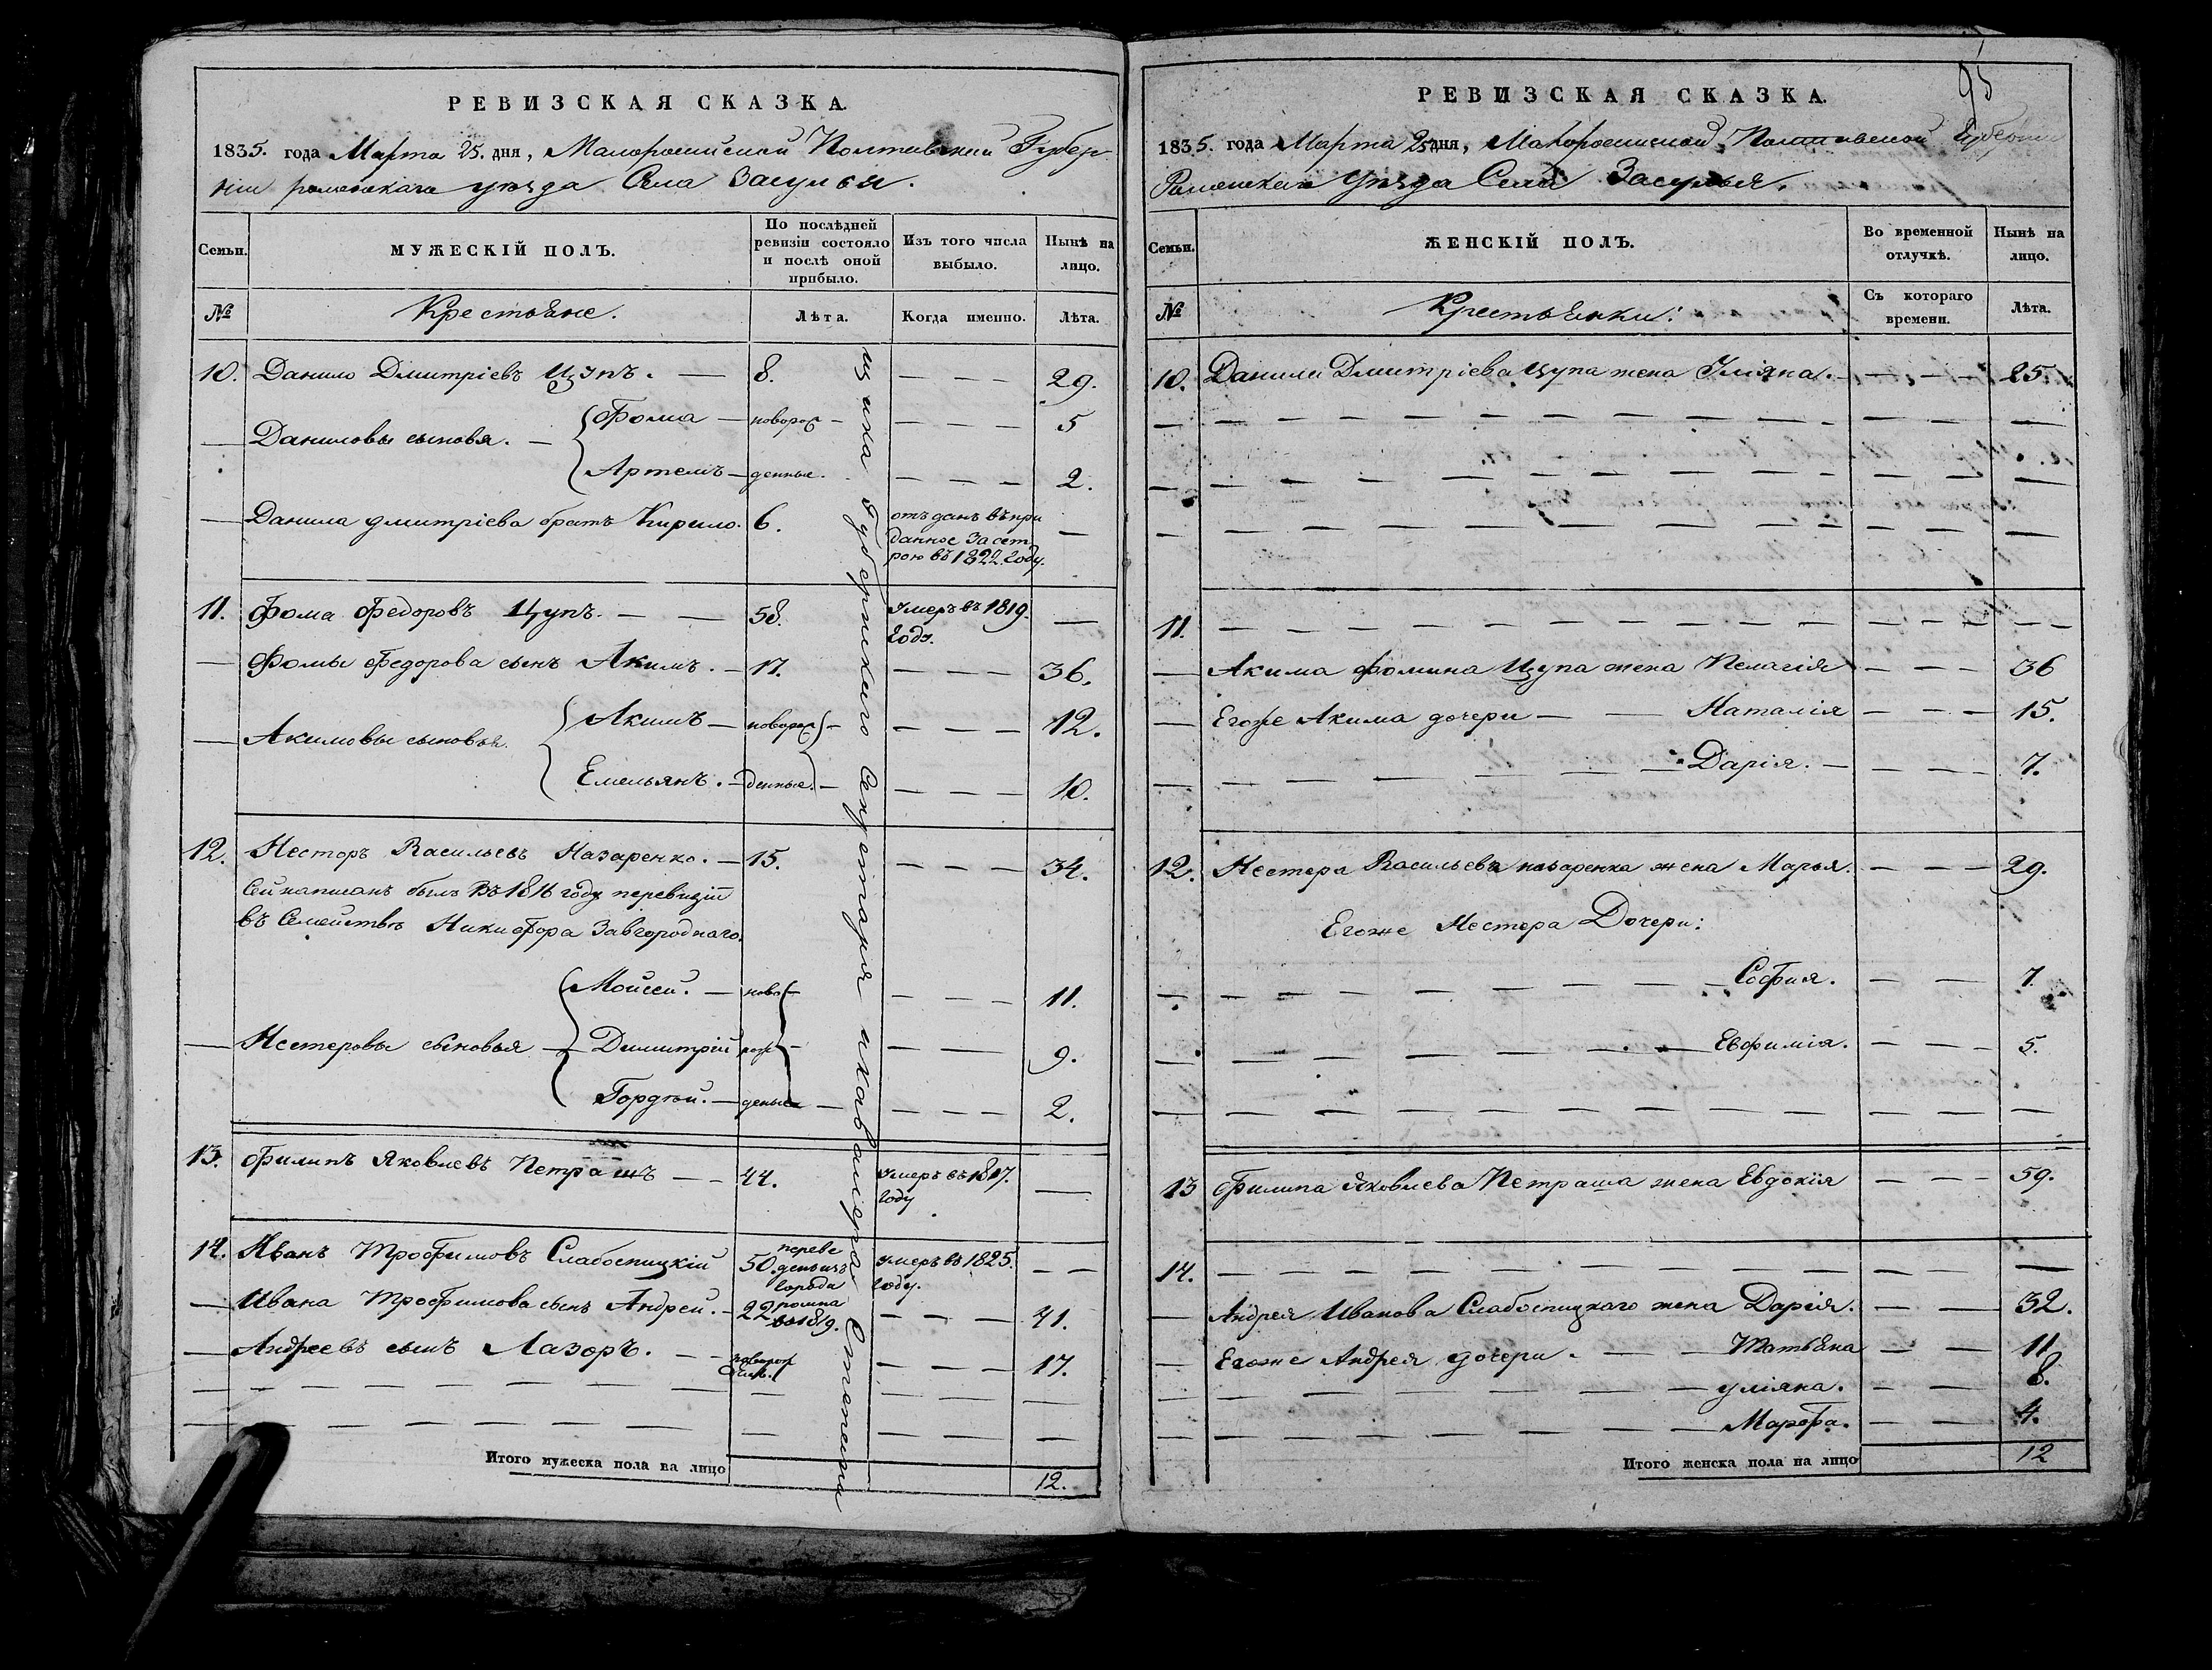 РЕВИЗСКАЯ СКАЗКА.
1835. года Марта 25. дня, Малоросийской Полтавской Губер
ніи роменскаго уѣзда Села Засулья.
Семьи.
МУЖЕСКІЙ ПОЛЪ.
По послѣдней ревизіи состояло и послѣ оной прибыло.
Изъ того числа выбыло.
Нынѣ на лицо.
№
Крестьяне.
Лѣта.
Когда именно.
Лѣта.
10. Данило Дмитріевъ Цупъ. — 8. — — — 29.
— Даниловы сыновя. — { Фома — новорож — — — — 5
Артемъ — денные. — — — 2.
— Данила дмитріева братъ Кирило. 6. отъданъ въпри
данное засест
рою въ 1822. году. —
11. Фома Федоровъ Цупъ. — — 58. Умеръ въ 1819.
году. —
— Фомы Федорова сынъ Акимъ. — 17. — — — 36.
— Акимовы сыновья. { Акимъ — новорож — — — — 12.
Емельянъ. — денные. — — — — 10.
12. Несторъ Васильевъ Назаренко. — 15. — — — 34.
Сей написанъ былъ въ 1816 году перевизіи
въ Семействѣ Никифора Завгороднаго.
{ Мойсей. — ново — — — — 11.
— Нестеровы сыновья — Димитрій рож — — — — 9.
Гордѣй. — денные — — — — 2.
13. Филипъ Яковлевъ Петрашъ — — 44. Умеръ въ 1817.
году —
14. Иванъ Трофимовъ Слабоспицкій 50. переве
денъ изъ
города
ромна
в 1819. Умеръ въ 1825.
году. — —
— Ивана Трофимова сынъ Андрей. — 22 — — — 41.
— Андреевъ сынъ Лазоръ. — — новорож — — — 17.
Итого мужеска пола на лицо 12.
Губернскаго Секретаря
РЕВИЗСКАЯ СКАЗКА.
95
1835. года Марта 25 дня, Малоросийской Полтавской Губерніи
Роменскаго Уѣзда Села Засулья.
Семьи.
ЖЕНСКІЙ ПОЛЪ.
Во временной отлучкѣ.
Нынѣ на лицо.
№
Крестьянки:
Съ котораго времени.
Лѣта.
10. Данила Дмитріева Цупа жена Уліяна. — — — 25.
11. — — — —
— Акима фомина Цупа жена Пелагія — — — 36
— Егоже Акима дочери — — Наталія — — — 15.
— Дарія. — — — — 7.
12. Нестера Васильева назаренка жена Марья. — — — 29.
Егоже Нестера Дочери:
— София. — — — 7.
— Евфимія. — — — 5.
13 Филипа Яковлева Петраша жена Евдокія — — — 59.
14. — — — —
— Андрея Иванова Слабоспицкаго жена Дарія. — — 32.
— Егоже Андрея дочери. — — Татьяна — — 11
— уліяна. — — 8.
— Марфа. — — 4.
Итого женска пола на лицо 12